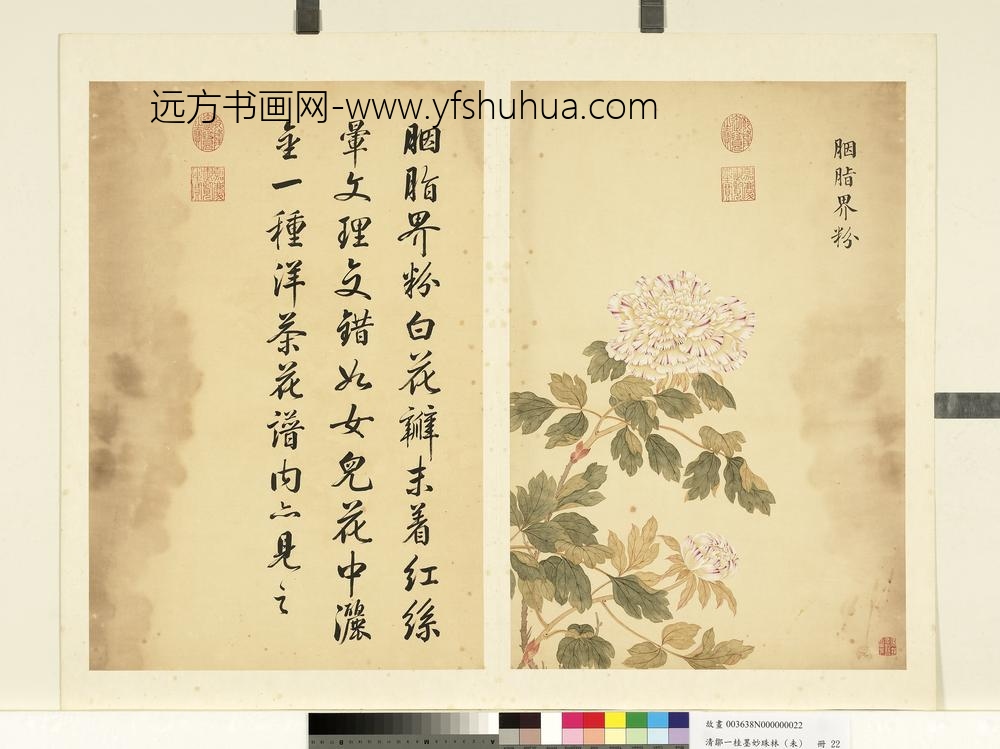 远方书画网-www.yfshuhua.com
胭脂界粉
胭脂界粉白花瓣末着紅絲
暈文理交錯如女兒花中灑
金一種洋茶花譜内亦見之
故畫 003638N000000022
清鄒一桂墨妙珠林（未） 冊 22